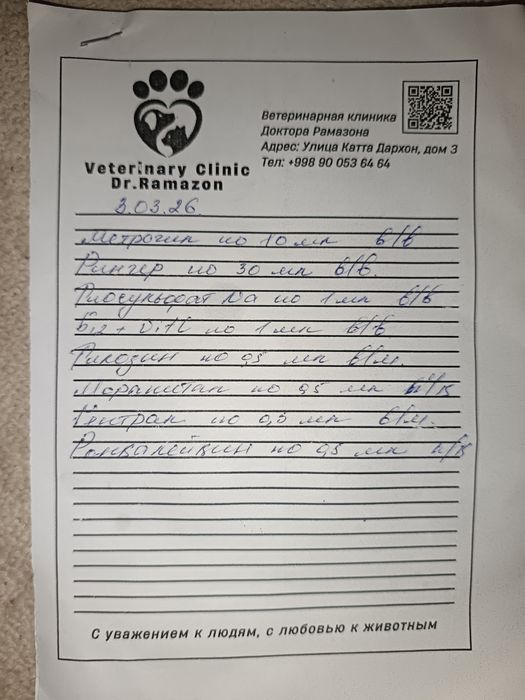 Ветеринарная клиника
Доктора Рамазона
Адрес: Улица Катта Дархон, дом 3
Тел: +998 90 053 64 64
Veterinary Clinic
Dr.Ramazon
3.03.26
Метрогил по 10 мл в/в
Рингер по 30 мл в/в.
Тиосульфат Na по 1 мл в/в
по 1 мл в/в
по 0,5 мл в/м.
по 0,5 мл п/к
по 0,5 мл в/м.
Ронколейкин по 0,5 мл п/к
С уважением к людям, с любовью к животным